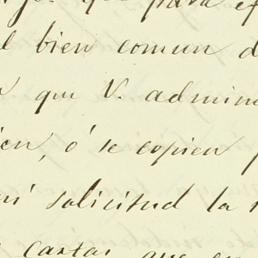 que para ef
l bien comun d
que V. admin
ien, ó se copien
mi solicitud la
cartas que